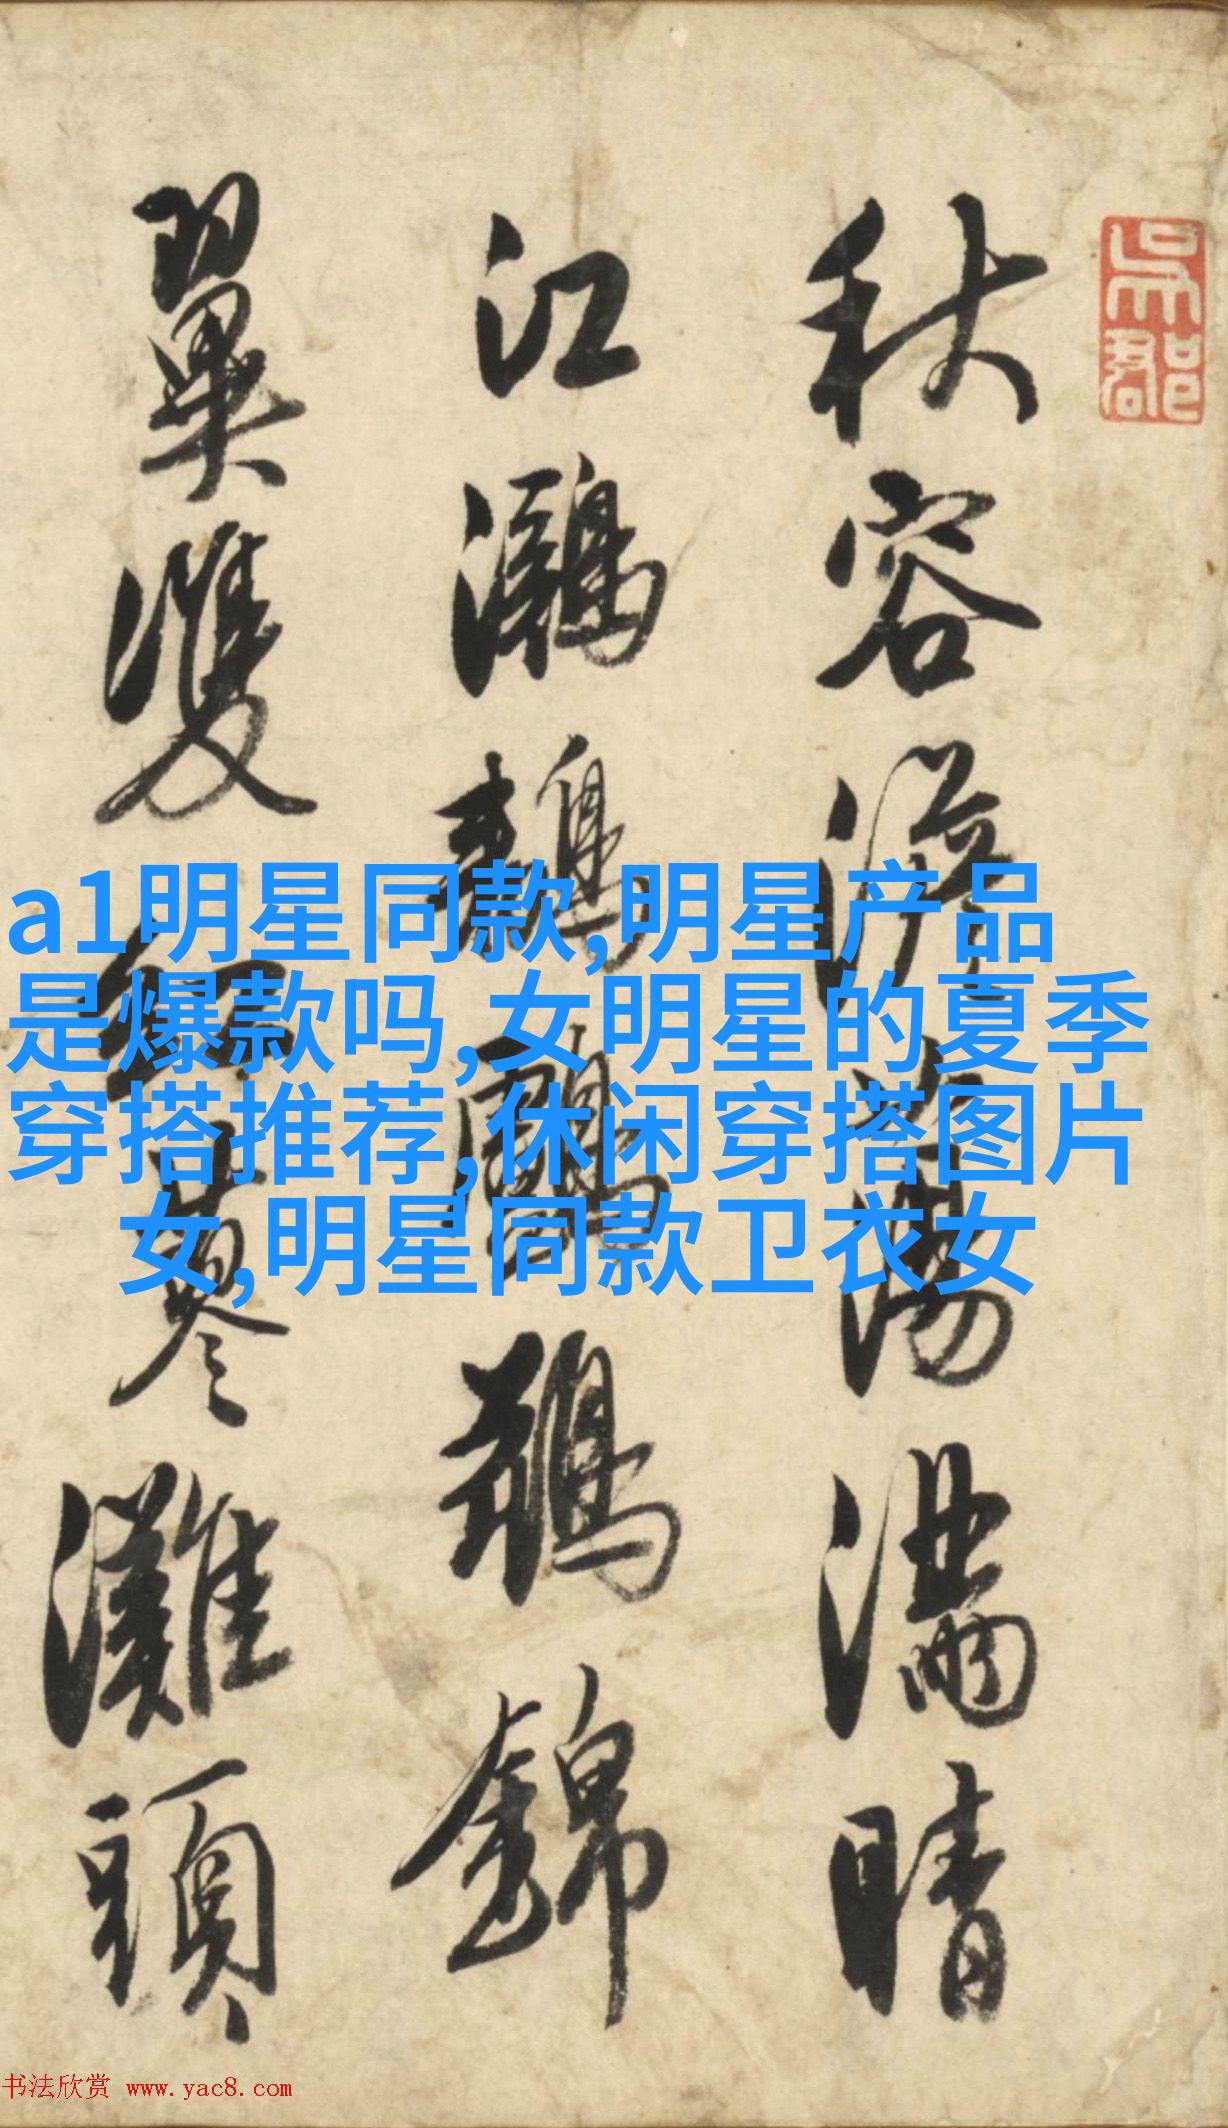 秋容溶蕩滿晴
江鸂鶒鸕鶿錦
翼雙紅蓼灘頭
吳郡
a1明星同款,明星产品
是爆款吗,女明星的夏季
穿搭推荐,休闲穿搭图片
女,明星同款卫衣女
书法欣赏 www.yac8.com